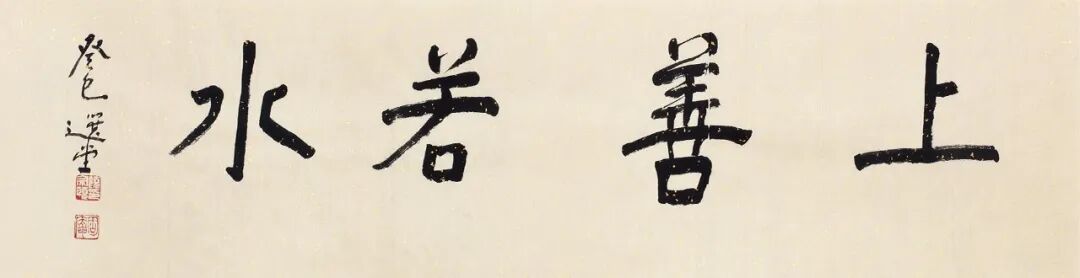 上善若水
癸巳選堂